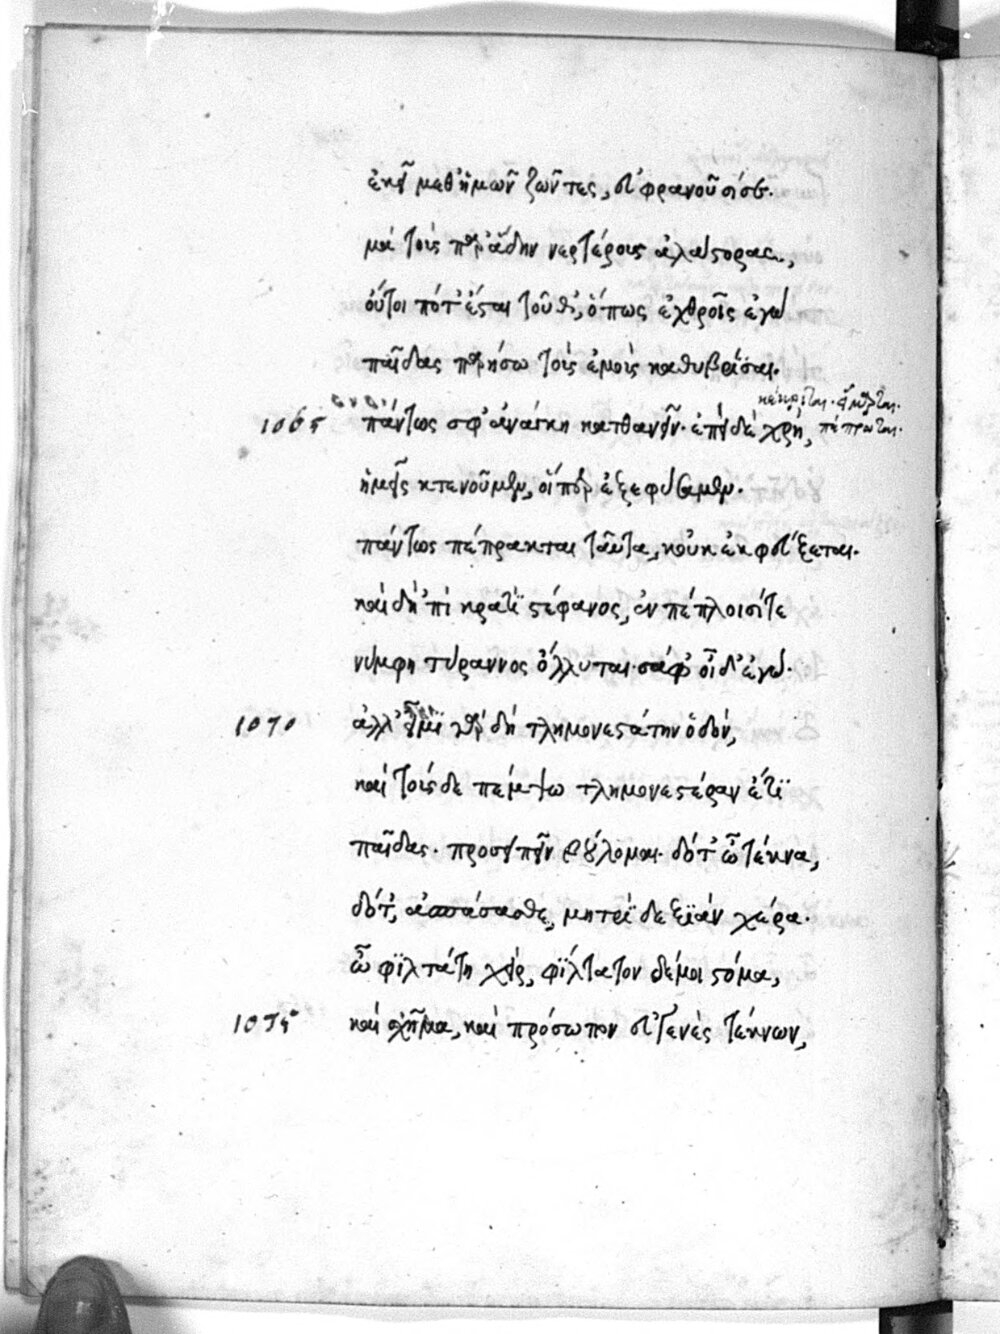 ἐκεῖ μεθ' ἡμῶν ζῶντες, εὐφρανοῦσί σε.
μὰ τοὺς παρ' ἅδην νερτέρους ἀλάστορας,
οὔτοι πότ' ἔσται τοῦθ', ὅπως ἐχθροῖς ἐγὼ
παῖδας παρήσω τοὺς ἐμοὺς καθυβρίσαι.
πέπρωται.
1065 πάντως σφ' ἀνάγκη κατθανεῖν· ἐπεὶ δὲ χρὴ,
ἡμεῖς κτενοῦμεν, οἵπερ ἐξεφύσαμεν.
πάντως πέπρακται ταῦτα, κοὐκ ἐκφεύξεται.
καὶ δὴ 'πὶ κρατὶ στέφανος, ἐν πέπλοισί τε
νύμφη τύραννος ὄλλυται· σάφ' οἶδ' ἐγώ.
1070 ἀλλ' εἶμι γὰρ δὴ τλημονεστάτην ὁδόν,
καὶ τούσδε πέμψω τλημονεστέραν ἔτι
παῖδας· προσειπεῖν βούλομαι· δότ' ὦ τέκνα,
δότ', ἀσπάσασθε, μητρὶ δεξιὰν χέρα.
ὦ φιλτάτη χείρ, φίλτατον δέ μοι στόμα,
1075 καὶ σχῆμα, καὶ πρόσωπον εὐγενὲς τέκνων,